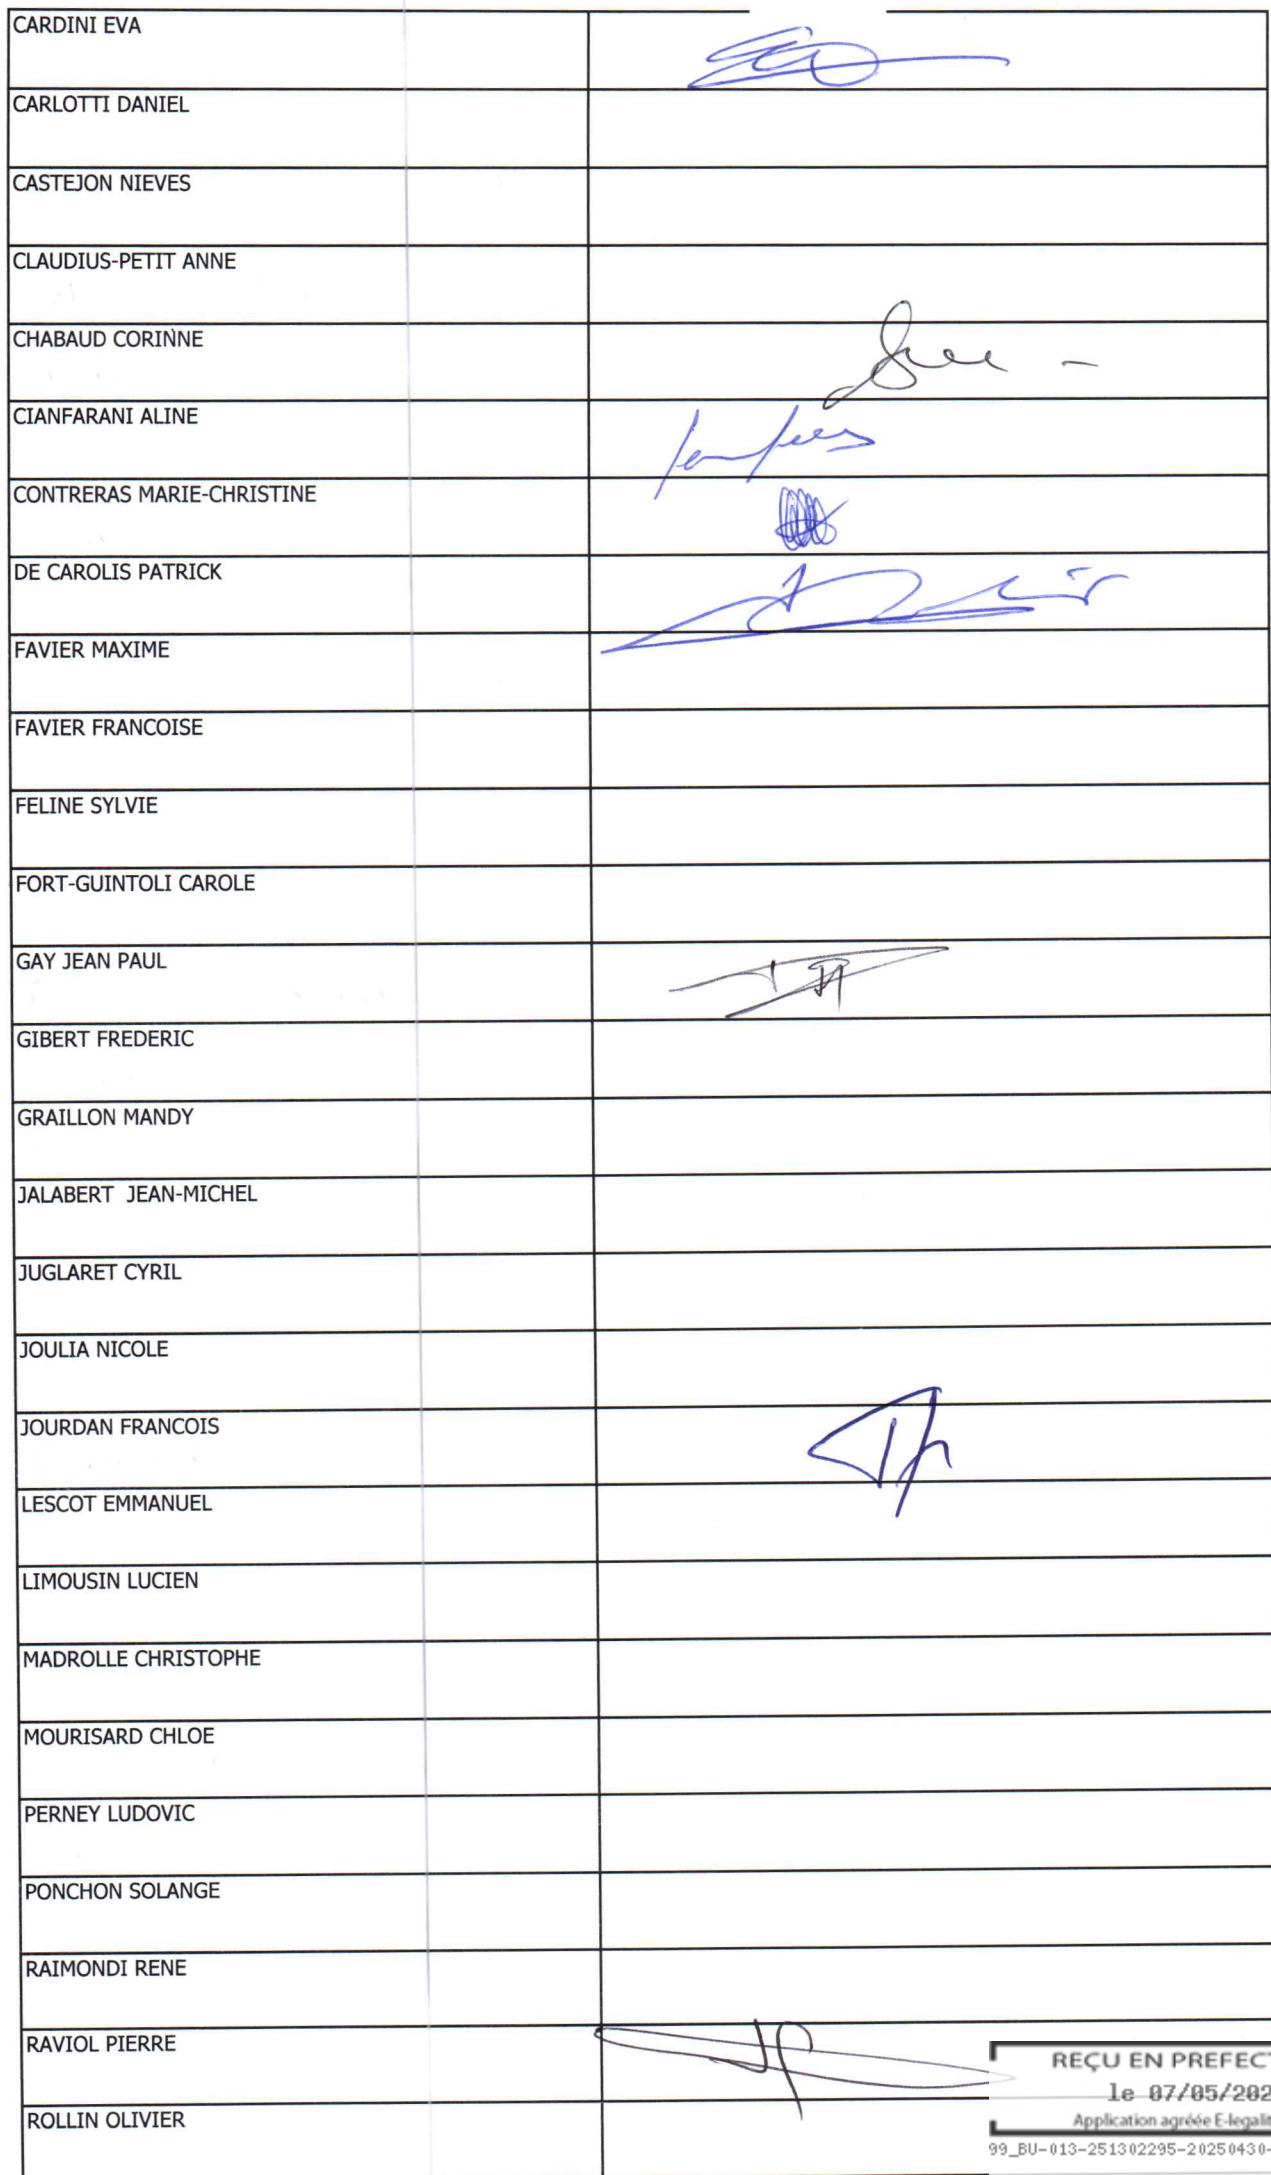 CARDINI EVA
CARLOTTI DANIEL
CASTEJON NIEVES
CLAUDIUS-PETIT ANNE
CHABAUD CORINNE
CIANFARANI ALINE
CONTRERAS MARIE-CHRISTINE
DE CAROLIS PATRICK
FAVIER MAXIME
FAVIER FRANCOISE
FELINE SYLVIE
FORT-GUINTOLI CAROLE
GAY JEAN PAUL
GIBERT FREDERIC
GRAILLON MANDY
JALABERT JEAN-MICHEL
JUGLARET CYRIL
JOULIA NICOLE
JOURDAN FRANCOIS
LESCOT EMMANUEL
LIMOUSIN LUCIEN
MADROLLE CHRISTOPHE
MOURISARD CHLOE
PERNEY LUDOVIC
PONCHON SOLANGE
RAIMONDI RENE
RAVIOL PIERRE
REÇU EN PREFECT
le 07/05/202
ROLLIN OLIVIER
Application agréée E-legalit
99_BU-013-251302295-20250430-